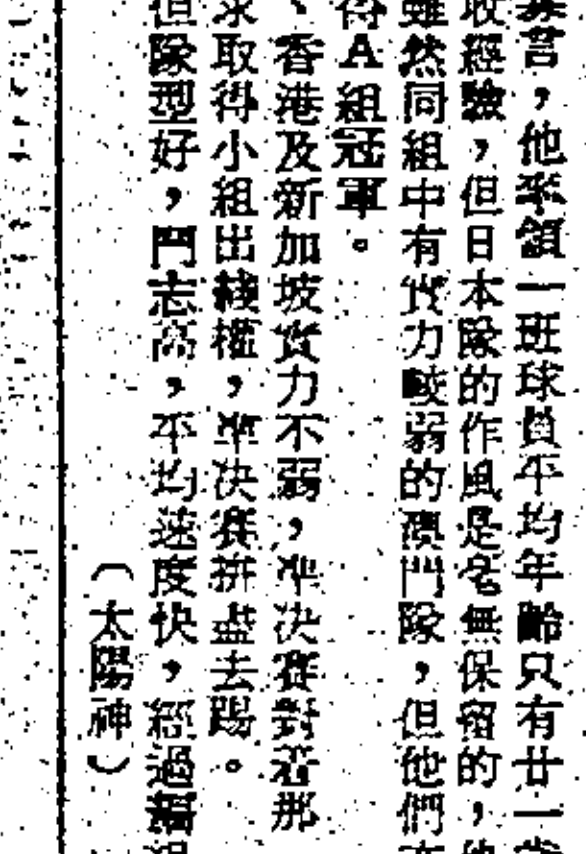 言，他率領一班球員平均年齡只有廿一歲
收經驗，但日本隊的作風是毫無保留的，他
雖然同組中有實力較弱的澳門隊，但他們
得A組冠軍。
、香港及新加坡實力不弱，準決賽對着那
求取得小組出綫權，準決賽拼盡去踢。
但隊型好，鬥志高，平均速度快，經過
（太陽神）